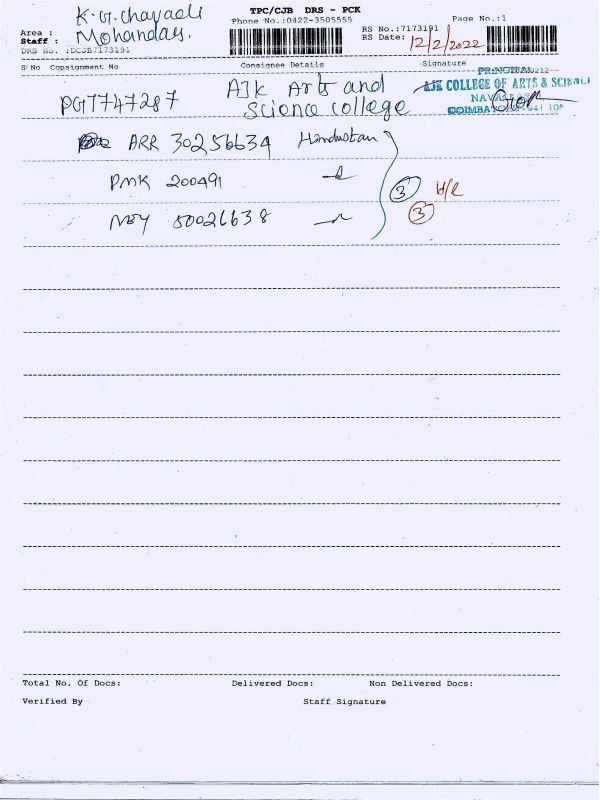 K.G. Chavadi
TPC/CJB DRS - PCK
Page No.:1
Phone No.:0422-3505555
Area :
Staff : Mohandas.
RS No.:7173191
RS Date: 12/2/2022
DRS No. :DCJB7173191
S No Consignment No Consignee Details Signature
PG7747287 AJK Arts and
Science college
PRINCIPAL
AJK COLLEGE OF ARTS & SCIENCE
ARR 30256634 Hindustan
PMK 200491
3
NEY 50026638
3
Total No. Of Docs: Delivered Docs: Non Delivered Docs:
Verified By Staff Signature